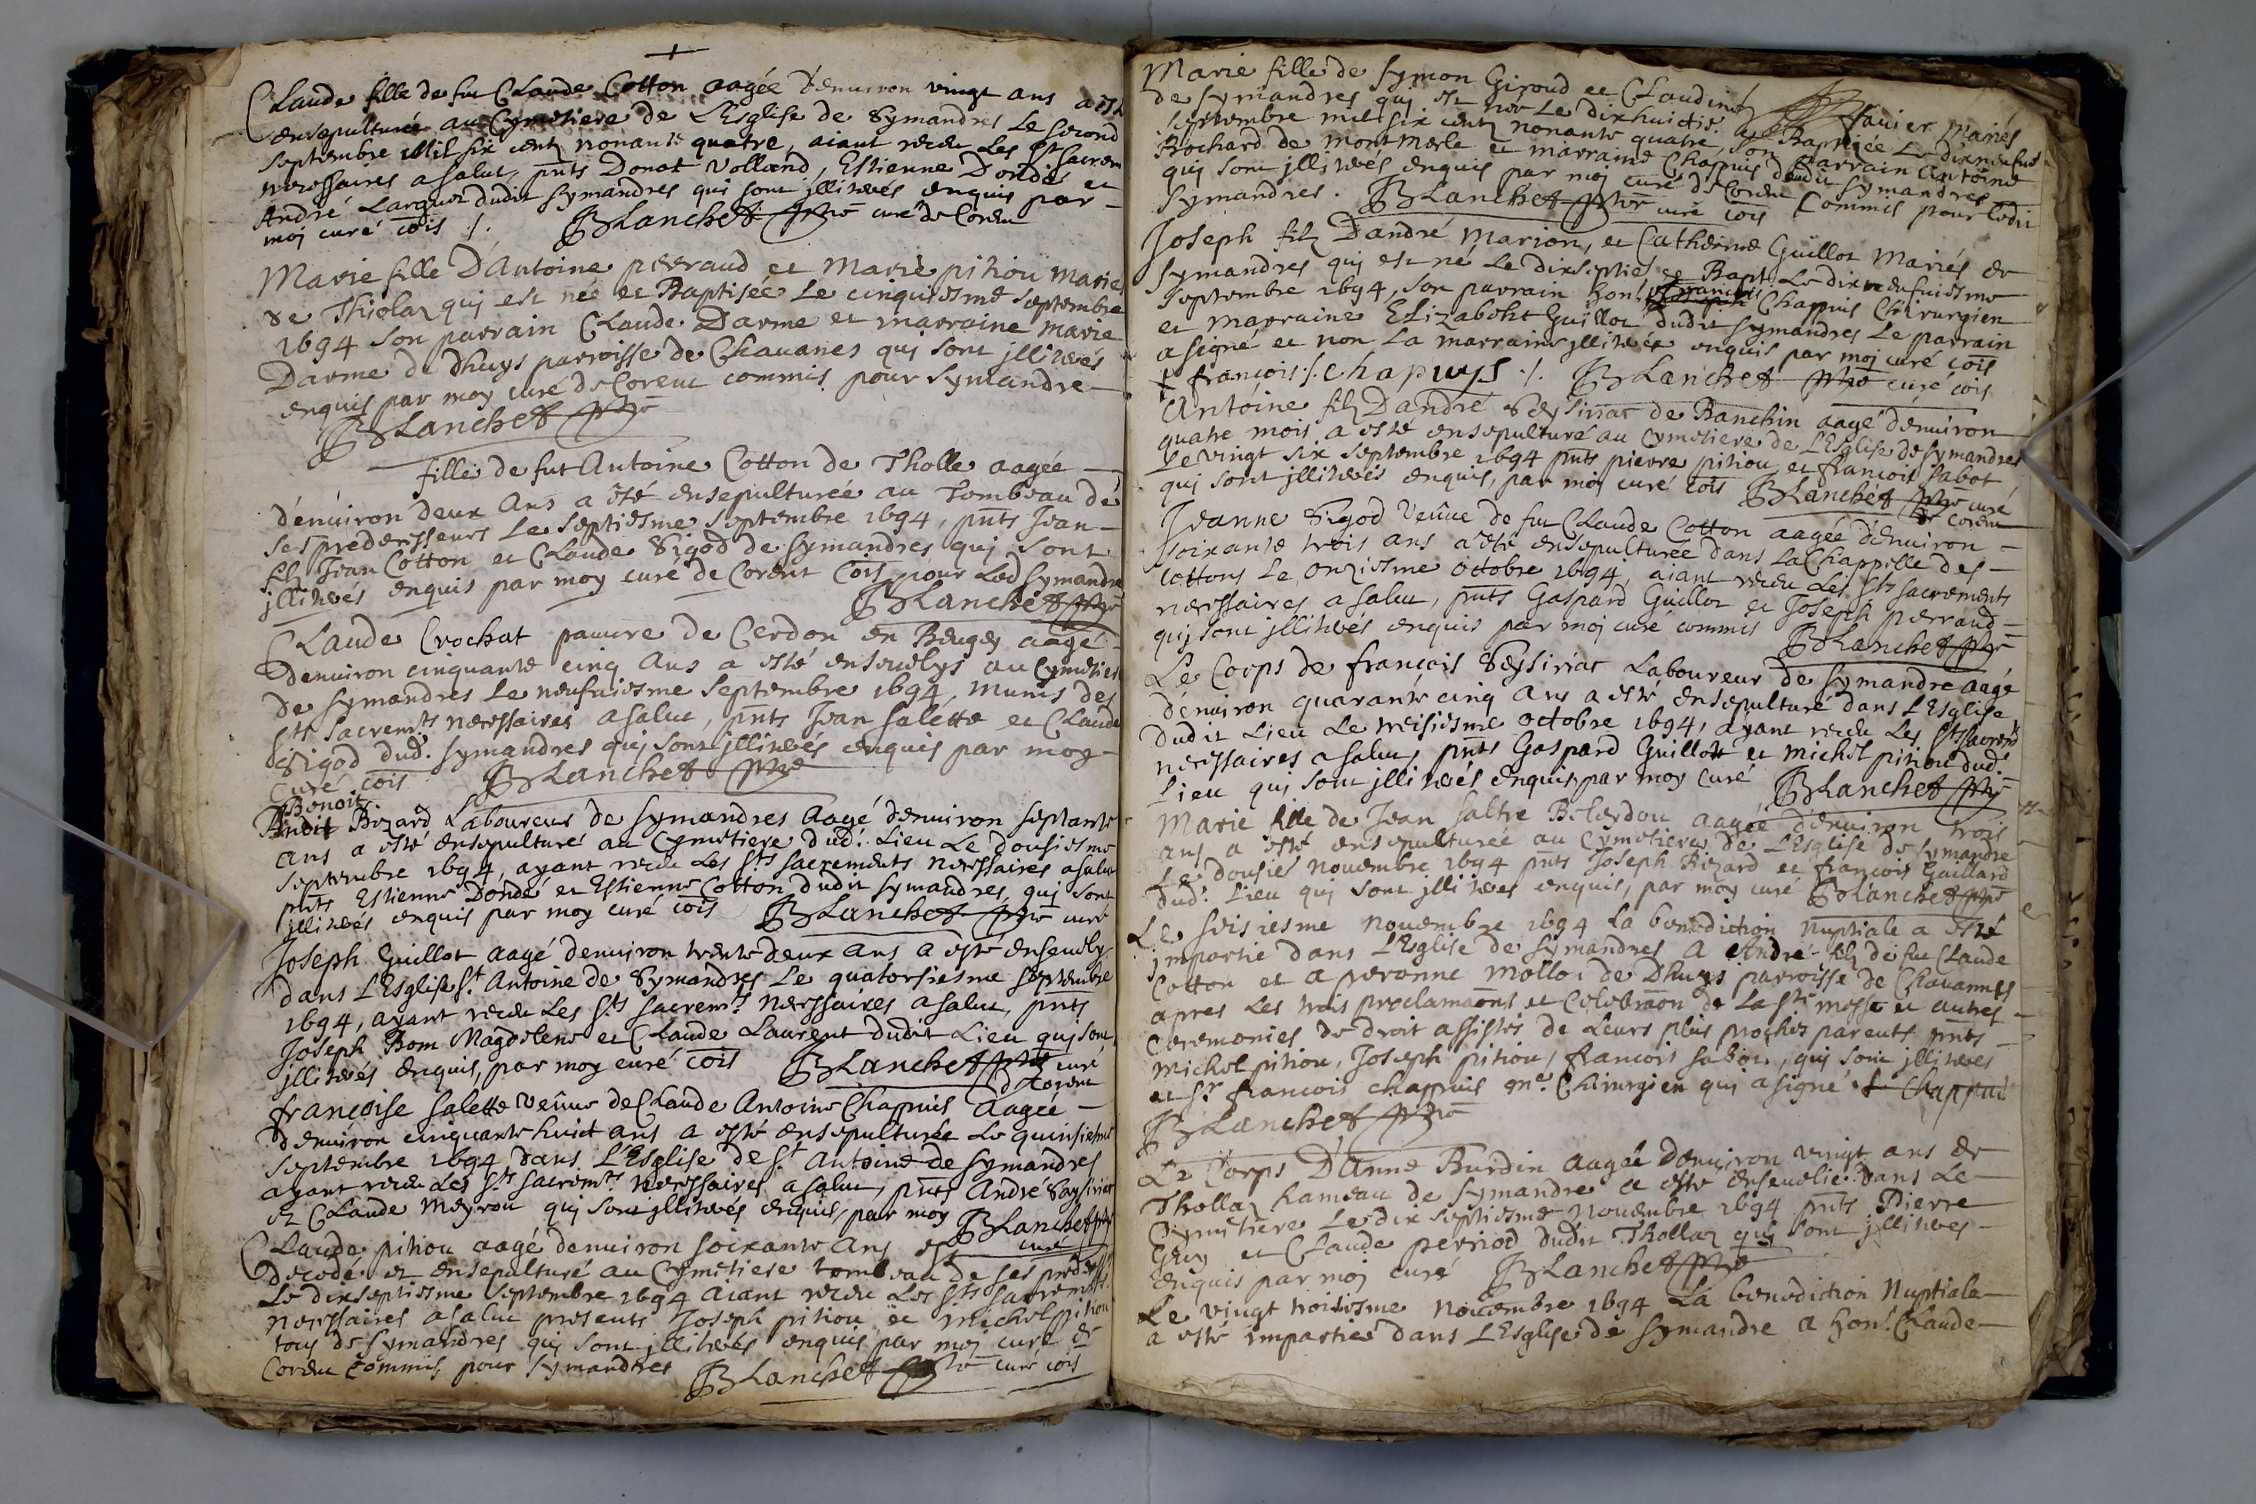 +
Claude fille de fut Claude Cotton aagée d'enuiron vingt ans a esté
ensepulturée au Cymetiere de L'Esglise de Symandres Le second
septembre Mil six cent nonante quatre, aiant receu Les Sts sacrem
necessaires a salut, pnts Donat Volland, Estienne Dondé et
André Larguet dudit Symandres qui sont jlliterés enquis par -
moj curé cois ./. Blanchet ptre curé de Corent
Marie fille D'Antoine perraud et Marie pitiou Mariés
de Thiolaz qui est née et Baptisée Le cinquiesme septembre
1694 son parrain Claude Darme et marraine Marie
Darme de Dhuys parroisse de Chauanes qui sont jlliterés
enquis par moy curé de Corent commis pour Symandre -
Blanchet ptre
fille de fut Antoine Cotton de Tholle aagée -
d'enuiron deux Ans a été ensepulturée au Tombeau de
ses predecesseurs Le septiesme septembre 1694, pnts Jean -
filz Jean Cotton et Claude Sigod de Symandres qui sont
jlliterés enquis par moy curé de Corent Cois pour Led Symandre
Blanchet ptre
Claude Crochat pauure de Cerdon en Beugey aagé
d'enuiron cinquante cinq Ans a esté enseuelys au Cymetiere
de Symandres Le neufuiesme Septembre 1694, Munis des
Sts Sacremts necessaires a salut, pnts Jean Salette et Claude
Sigod dud. Symandres qui sont jlliterés enquis par moy -
Curé cois Blanchet ptre
Benoit
Bizard Laboureur de Symandres Aagé d'enuiron septante
ans a esté ensepulturé au Cymetiere dud. Lieu Le dousiesme
Septembre 1694, ayant receu Les Sts sacrements necessaires a salut
pnts Estienne Dondé et Estienne Cotton dudit Symandres, qui sont
jlliterés enquis par moy curé cois Blanchet ptre curé
Joseph Guillot aagé d'enuiron trente deux ans a esté enseuely
dans L'Esglise St Antoine de Symandres Le quatorsiesme septembre
1694, ayant receu Les Sts sacremts necessaires a salut, pnts
Joseph Bom Magdelene et Claude Laurent dudit Lieu qui sont
jlliterés enquis, par moy curé cois Blanchet ptre curé
d Corent
françoise Salette Veûue de Claude Antoine Chappuis Aagée -
d'enuiron cinquante huict ans a esté ensepulturée Le quinsiesme
Septembre 1694 dans L'Esglise de St Antoine de Symandres
ayant receu Les Sts sacremts necessaires a salut, pnts André Seysiriat
et Claude Meyron qui sont jlliterés enquis, par moy Blanchet ptre
curé
Claude pitiou aagé d'enuiron soixante Ans est
decedé et ensepulturé au Cymetiere tombeau de ses predess
Le dixseptiesme septembre 1694 aiant receu Les Sts sacremts
necessaires a salut presents Joseph pitiou et Michel pitiou
tous de Symandres qui sont jlliterés enquis par moj curé de
Corent Commis pour Symandres Blanchet ptre curé cois
Marie fille de Symon Giroud et Claudine fauier Mariés
de Symandres qui est née Le dixhuictie. & Baptisée Le dixneufuie
septembre mil six centz nonante quatre, son parrain Antoine
Bochard de Montmerle et marraine Chappuis dudit Symandres
qui sont jlliterés enquis par moj curé de Corent Commis pour Ledit
Symandres. Blanchet ptre curé cois
Joseph filz D'andré Marion, et Catherine Guillot Mariés de
Symandres qui est né Le dixseptie. & Bapt. Le dixneufuiesme
septembre 1694, son parrain Hon. françois Chappuis Chirurgien
et Marraine Elizabeht Guillot dudit Symandres Le parrain
a signé et non La marraine jlliterée enquis par moj curé cois
+ francois ./. chapuys ./. Blanchet ptre curé cois
Antoine filz D'andré Seysiriat de Banchin aagé d'enuiron
quatre mois a esté ensepulturé au Cymetiere de L'Esglise de Symandres
Le vingt six septembre 1694 pnts pierre pitiou, et françois Sabot
qui sont jlliterés enquis, par moj curé cois Blanchet ptre curé
de Corent
Jeanne Sigod Veûue de fut Claude Cotton aagée d'enuiron -
soixante trois ans a été ensepulturée dans La Chappelle des -
Cottons Le onziesme octobre 1694, aiant receu Les Sts sacrements
necessaires a salut, pnts Gaspard Guillot et Joseph perraud -
qui sont jlliterés enquis par moj curé commis Blanchet ptre
Le Corps de françois Seysiriat Laboureur de Symandre aagé
d'enuiron quarante cinq Ans a esté ensepulturé dans L'Esglise
dudit Lieu Le treisiesme octobre 1694, ayant receu Les Sts sacremts
necessaires a salut, pnts Gaspard Guillott et Michel pitiou dud.
Lieu qui sont jlliterés enquis, par moy curé Blanchet ptre
Marie fille de Jean aagée d'enuiron trois
ans a esté ensepulturée au Cymetiere de L'Esglise de Symandre
Le dousie. Nouembre 1694 pnts Joseph Bizard et françois Gaillard
dud. Lieu qui sont jlliterés enquis, par moy curé Blanchet ptre
Le seisiesme Nouembre 1694 La benediction Nuptiale a esté
impartie dans L'Esglise de Symandres A André filz de fut Claude
Cotton et a peronne Mollo de Dhuys parroisse de Chauannes
apres Les trois proclamaons et Celebraon de La Ste messe et autres -
Ceremonies de droit assistés de Leurs plus proches parents pnts -
Michel pitiou, Joseph pitiou, françois Sabot, qui sont jlliterés
et Sr françois Chappuis Me. Chirurgien qui a signé. f Chappuis
Blanchet ptre
Le Corps D'Anne Burdin aagée d'enuiron vingt ans de
Thollaz hameau de Symandre a esté enseuelie dans Le -
Cymetiere Le dix septiesme Nouembre 1694 pnts Pierre
Guy et Claude perriod dudit Thollaz qui sont jlliterés -
Enquis par moj curé Blanchet ptre
Le vingt troisiesme Nouembre 1694 La benediction Nuptiale -
a esté impartie dans L'Esglise de Symandre a hon. Claude -